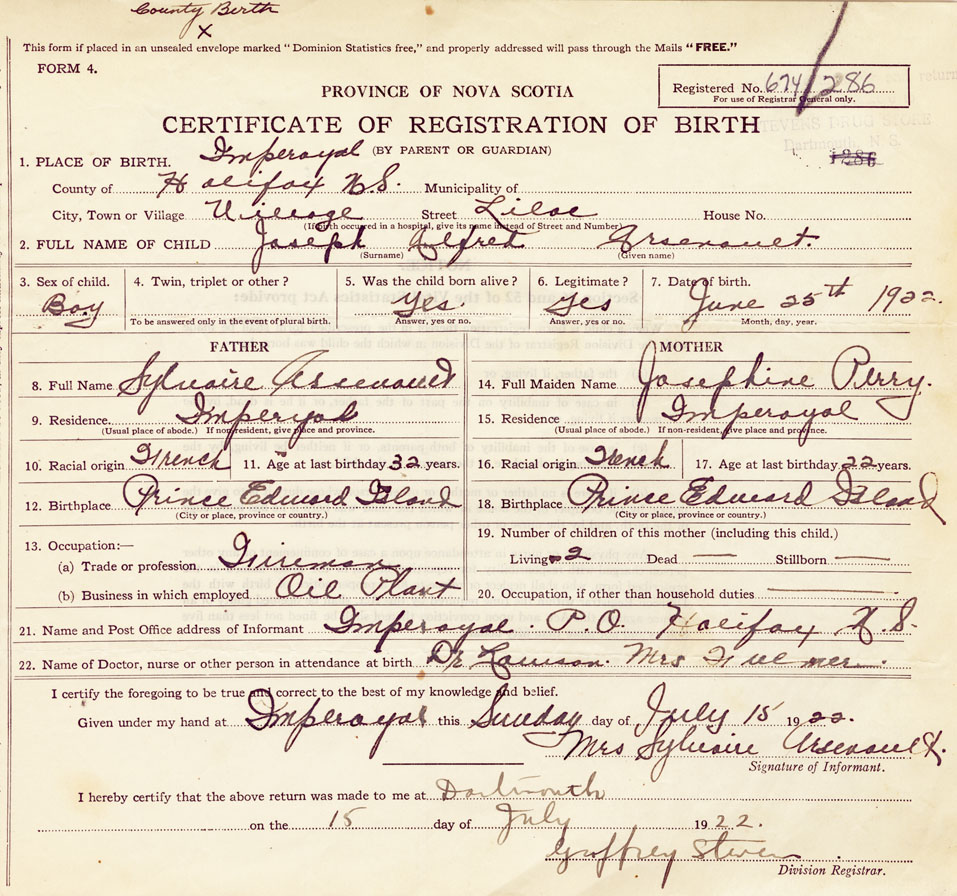 County Birth
X
This form if placed in an unsealed envelope marked "Dominion Statistics free," and properly addressed will pass through the Mails "FREE."
FORM 4.
Registered No. 674/286
For use of Registrar General only.
PROVINCE OF NOVA SCOTIA
CERTIFICATE OF REGISTRATION OF BIRTH
STEVENS DRUG STORE
Dartmouth, N. S.
(BY PARENT OR GUARDIAN)
1286
1. PLACE OF BIRTH. Imperoyal
County of Halifax N.S. Municipality of
City, Town or Village Village Street Lilac House No.
(If birth occurred in a hospital, give its name instead of Street and Number)
2. FULL NAME OF CHILD Joseph Alfred Arsenault.
(Surname) (Given name)
3. Sex of child. 4. Twin, triplet or other? 5. Was the child born alive? 6. Legitimate? 7. Date of birth.
Boy Yes Yes June 25th 1922.
To be answered only in the event of plural birth. Answer, yes or no. Answer, yes or no. Month, day, year.
FATHER MOTHER
8. Full Name Sylvaire Arsenault 14. Full Maiden Name Josephine Perry.
9. Residence Imperyal 15. Residence Imperoyal
(Usual place of abode.) If non-resident, give place and province. (Usual place of abode.) If non-resident, give place and province.
10. Racial origin French 11. Age at last birthday 32 years. 16. Racial origin French 17. Age at last birthday 22 years.
12. Birthplace Prince Edward Island 18. Birthplace Prince Edward Island
(City or place, province or country.) (City or place, province or country.)
19. Number of children of this mother (including this child.)
13. Occupation:—
(a) Trade or profession Fireman Living 2 Dead — Stillborn —
(b) Business in which employed Oil Plant 20. Occupation, if other than household duties —
21. Name and Post Office address of Informant Imperoyal. P.O. Halifax N.S.
22. Name of Doctor, nurse or other person in attendance at birth Dr Lawson. Mrs
I certify the foregoing to be true and correct to the best of my knowledge and belief.
Given under my hand at Imperoyal this Sunday day of July 15 1922.
Mrs Sylvaire Arsenault.
Signature of Informant.
I hereby certify that the above return was made to me at Dartmouth
on the 15 day of July 1922.
Geoffrey Stevens
Division Registrar.